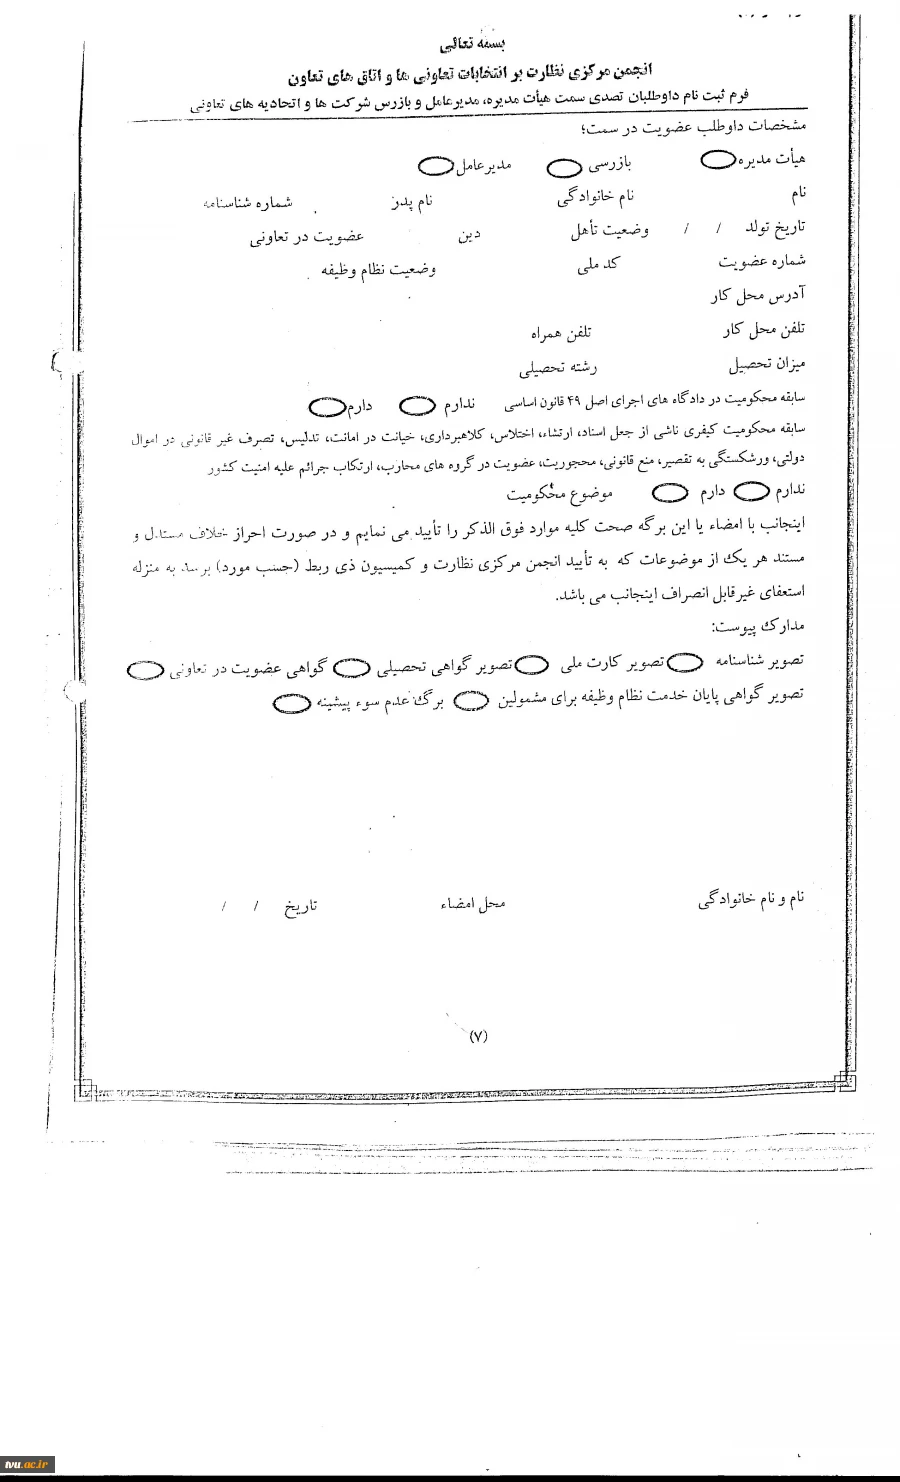 بسمه تعالی
انجمن مرکزی نظارت بر انتخابات تعاونی ها و اتاق های تعاون
فرم ثبت نام داوطلبان تصدی سمت هیأت مدیره، مدیرعامل و بازرس شرکت ها و اتحادیه های تعاونی
مشخصات داوطلب عضویت در سمت؛
هیأت مدیره بازرسی مدیرعامل
نام نام خانوادگی نام پدر شماره شناسنامه
تاریخ تولد / / وضعیت تأهل دین عضویت در تعاونی
شماره عضویت کد ملی وضعیت نظام وظیفه
آدرس محل کار
تلفن محل کار تلفن همراه
میزان تحصیل رشته تحصیلی
سابقه محکومیت در دادگاه های اجرای اصل ۴۹ قانون اساسی ندارم دارم
سابقه محکومیت کیفری ناشی از جعل اسناد، ارتشاء، اختلاس، کلاهبرداری، خیانت در امانت، تدلیس، تصرف غیر قانونی در اموال
دولتی، ورشکستگی به تقصیر، منع قانونی، محجوریت، عضویت در گروه های محارب، ارتکاب جرائم علیه امنیت کشور
ندارم دارم موضوع محکومیت
اینجانب با امضاء یا این برگه صحت کلیه موارد فوق الذکر را تأیید می نمایم و در صورت احراز خلاف مستدل و
مستند هر یک از موضوعات که به تأیید انجمن مرکزی نظارت و کمیسیون ذی ربط (حسب مورد) برسد به منزله
استعفای غیرقابل انصراف اینجانب می باشد.
مدارک پیوست:
تصویر شناسنامه تصویر کارت ملی تصویر گواهی تحصیلی گواهی عضویت در تعاونی
تصویر گواهی پایان خدمت نظام وظیفه برای مشمولین برگ عدم سوء پیشینه
نام و نام خانوادگی محل امضاء تاریخ / /
(۷)
tvu.ac.ir